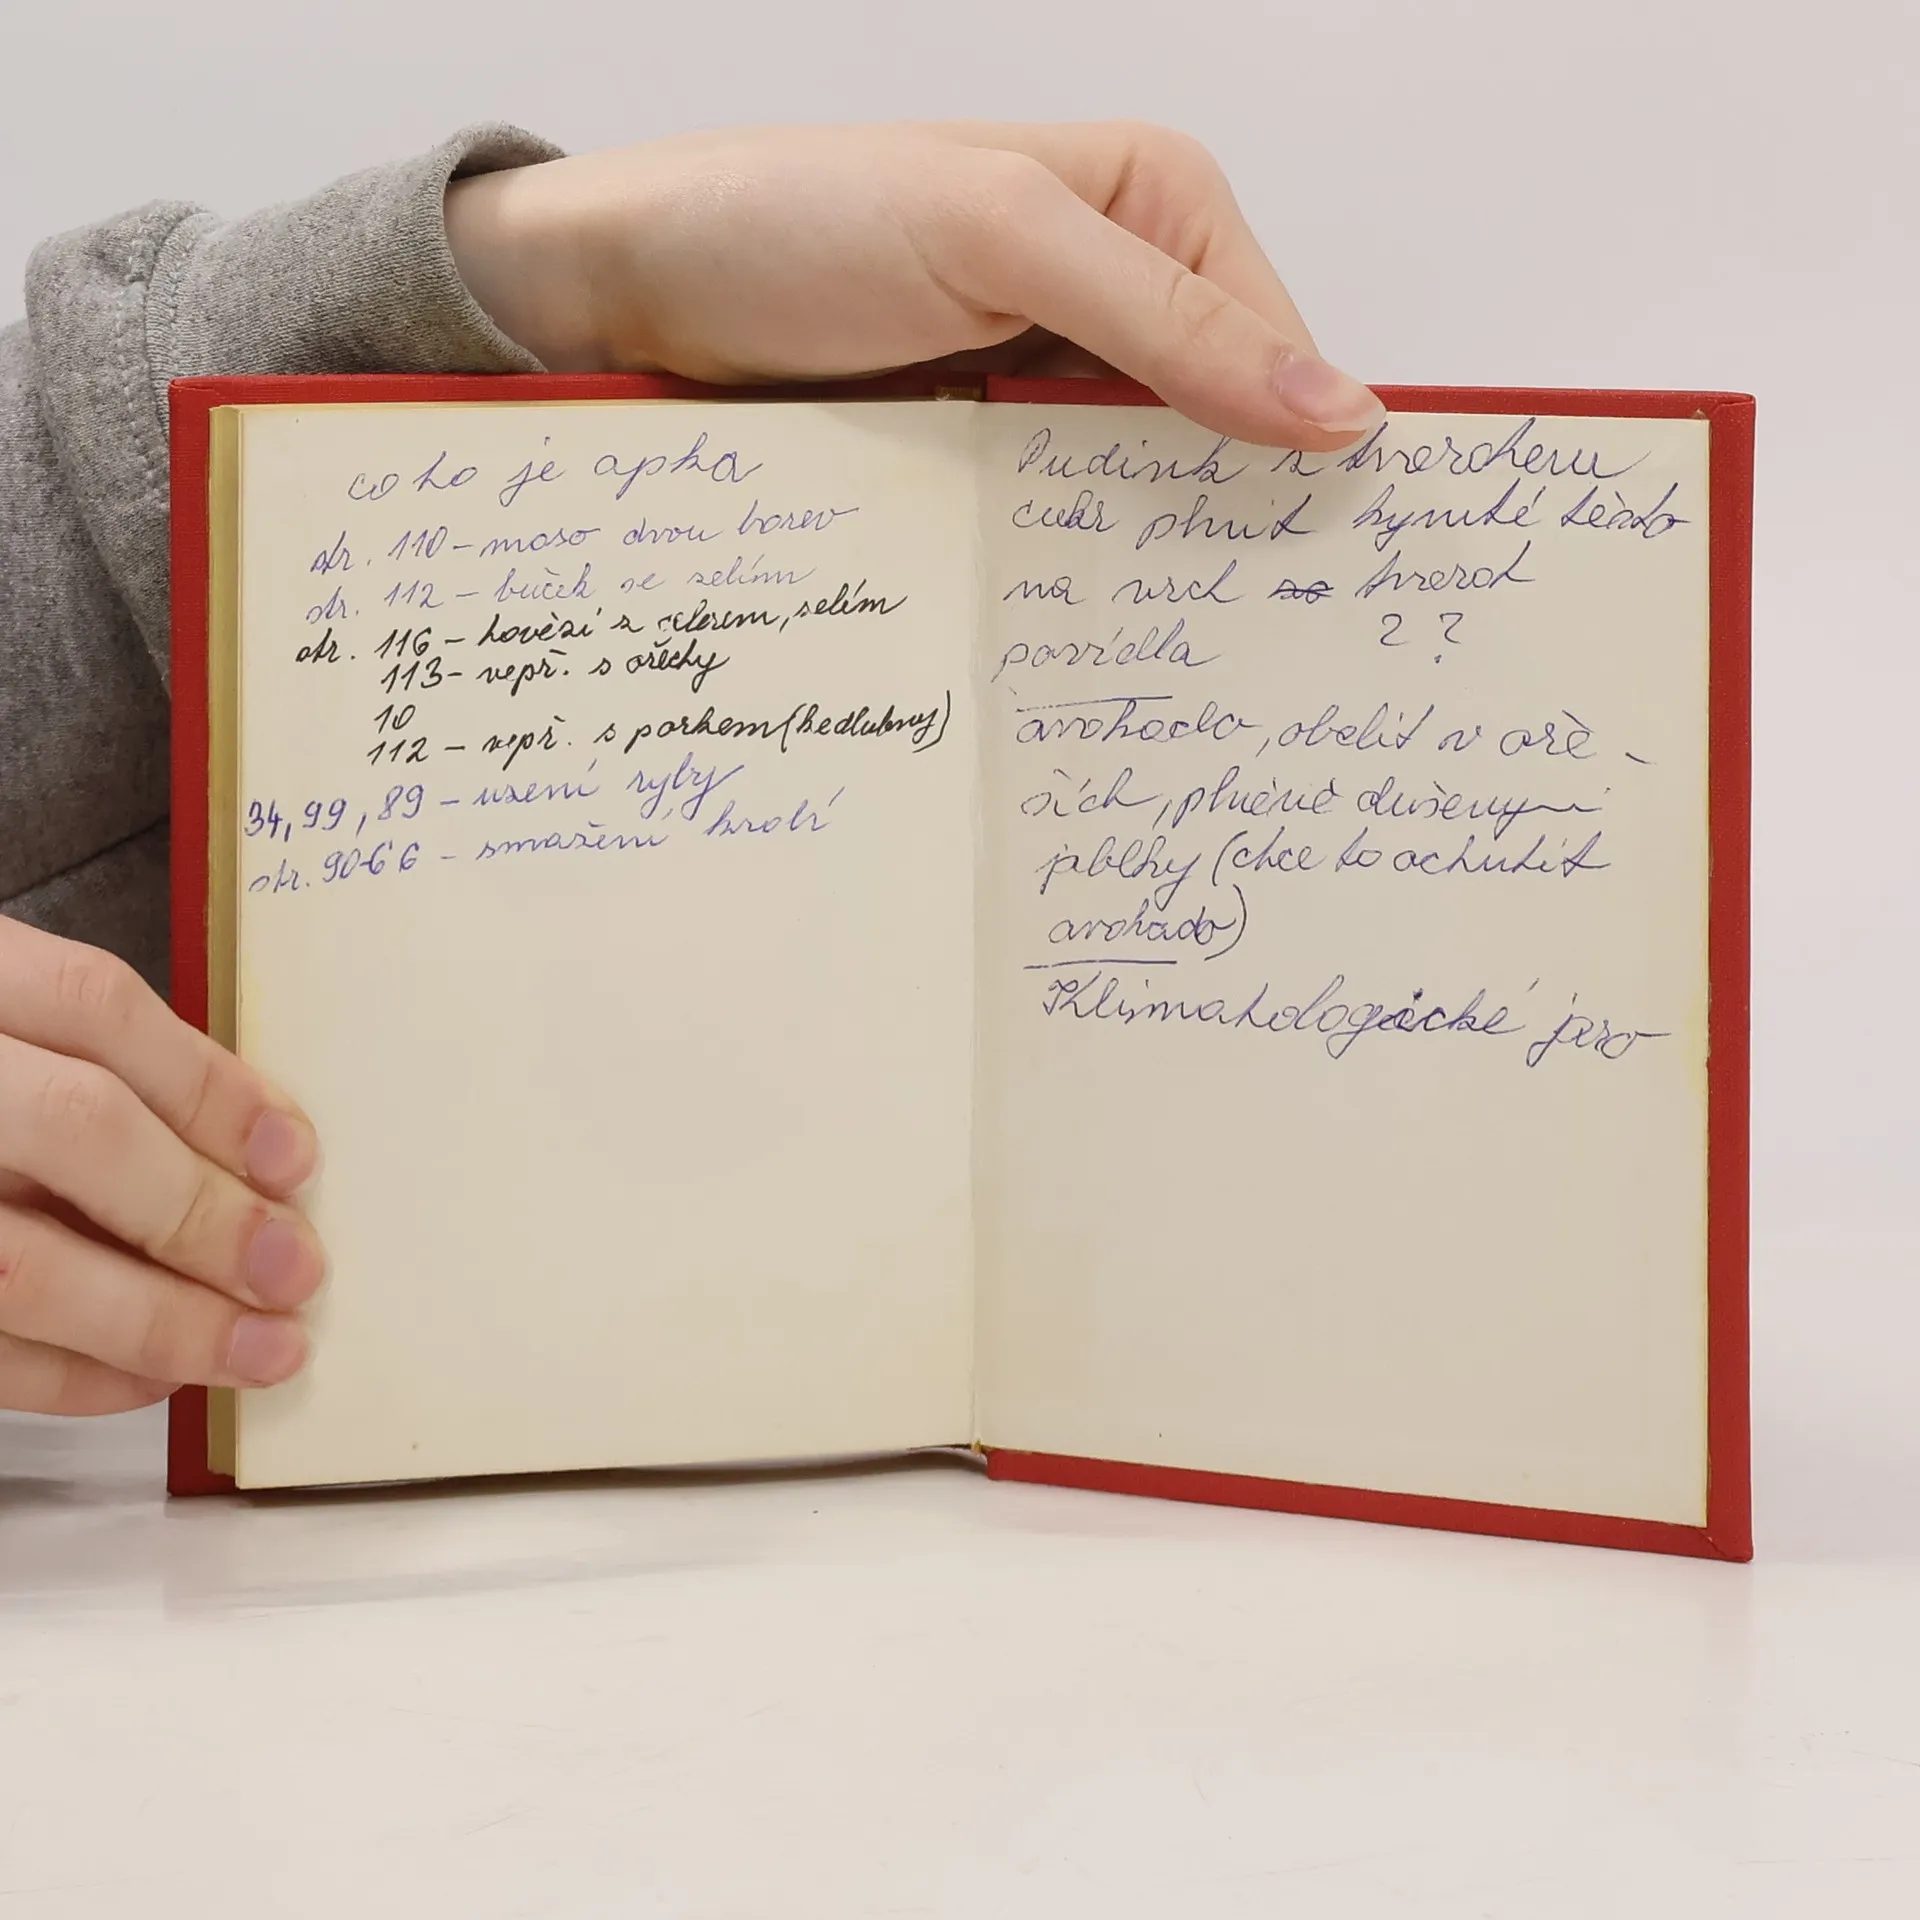 co to je apka
str. 110 - maso dvou barev
str. 112 - bůček se zelím
str. 116 - hovězí z celerem, zelím
113 - vepř. s ořechy
10
112 - vepř. s porkem (kedlubny)
34, 99, 89 - uzení ryby
str. 90-66 - smažení krolí
Pudink z tvarohem
cukr plnit kynuté těsto
na vrch tvaroh
povidla ? ?
avokado, obalit v oře-
ších, plněné dušenými
jablky (chce to ochutit
avokado)
Klimatologické jaro